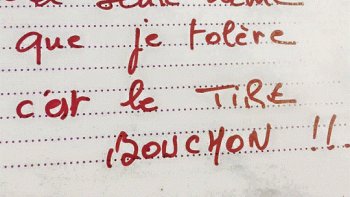 seule
que je tolère
c'est le TIRE
BOUCHON !!